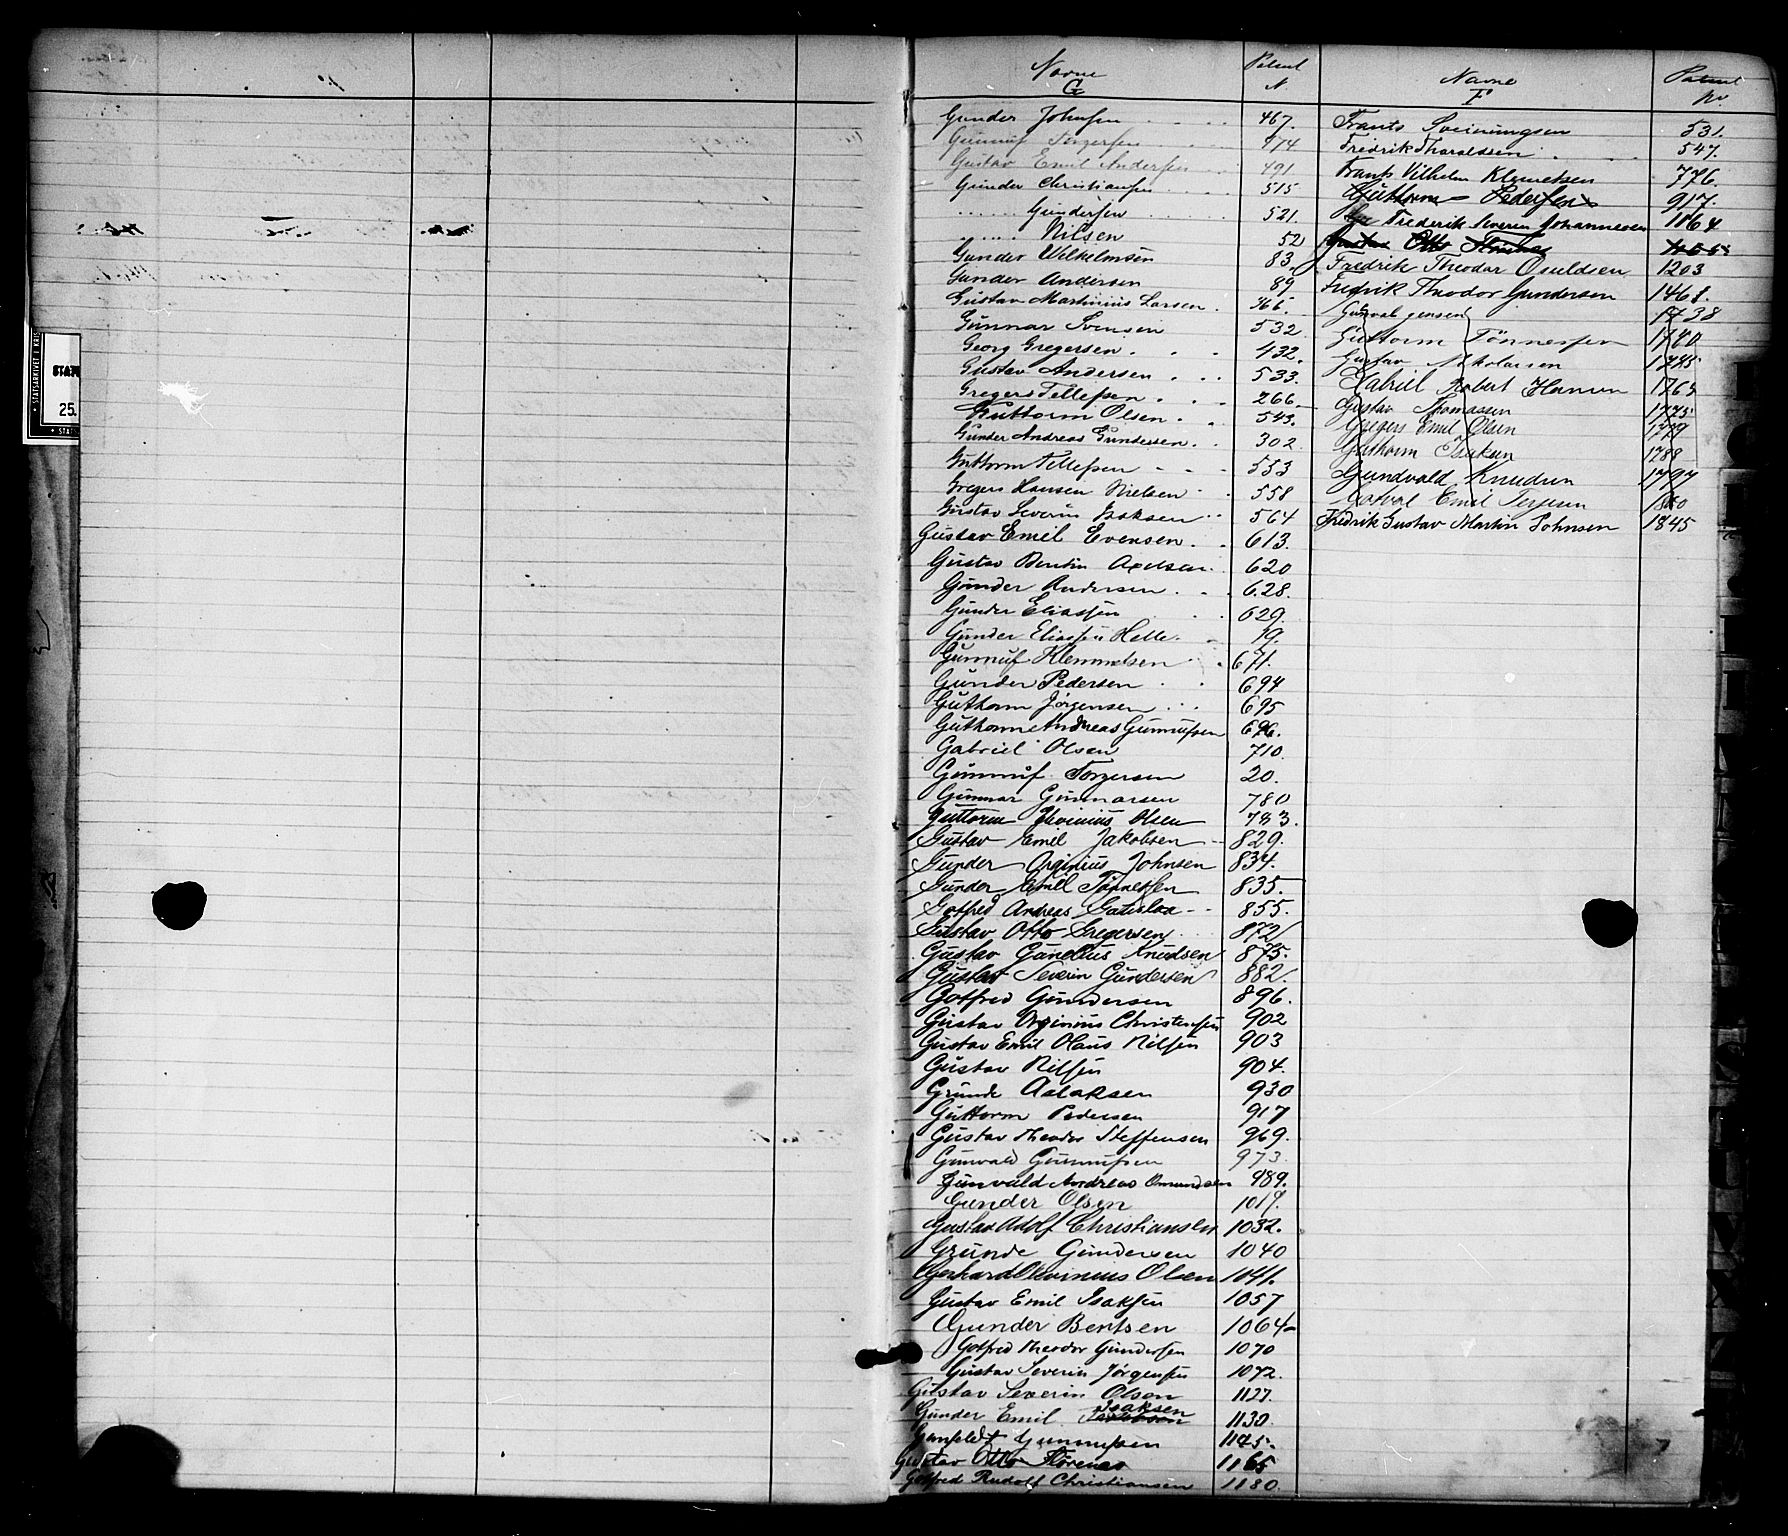 Navne
G
Patent
N.
Gunder Johnsen 467.
Gunnuf Torgersen 474
Gustav Emil Andersen 491.
Gunder Christiansen 515
" Gundersen 521.
" Nilsen 52
Gunder Wilhelmsen 83.
Gunder Andersen 89
Gustav Martinius Larsen. 365.
Gunnar Svensen 532
Georg Gregersen. 432.
Gustav Andersen 533.
Gregers Tellefsen 266.
Guttorm Olsen 543.
Gunder Andreas Gundersen. 302
Guttorm Tellefsen 553
Gregers Hansen Nielsen 558
Gustav Severin Isaksen 564
Gustav Emil Evensen. 613.
Gustav Bentin Axelsen. 620
Gunder Andersen 628.
Gunder Eliassen 629.
Gunder Eliassen Helle. 19.
Gunnuf Klemmetsen 671.
Gunder Pedersen 694
Guthorm Jörgensen 695
Guthorm Andreas Gunnufsen 696.
Gabriel Olsen 710.
Gunnuf Torgersen 20.
Gunnar Gunnarsen 780
Guttorm Olsen 783.
Gustav Emil Jakobsen 829.
Gunder Arginius Johnsen 834.
Gunder Emil Tönnesen 835.
Gotfred Andreas 855.
Gustav Otto Gregersen 872
Gustav Gunelius Knudsen 875.
Gustav Severin Gundersen 882.
Gotfred Gundersen 896.
Gustav Arginius Christensen 902
Gustav Emil Olaus Nilsen 903
Gustav Nilsen 904.
Grunde Aslaksen 930
Guttorm Pedersen 917
Gustav Theodor Steffensen 969.
Gunvald Gunnufsen 973.
Gunvald Andreas Omundsen 989.
Gunder Olsen 1017.
Gustav Adolf Christiansen 1032.
Grunde Gundersen 1040
Gerhard Olevinius Olsen 1041.
Gustav Emil Isaksen 1057
Gunder Bentsen 1064
Gotfred Theodor Gundersen 1070
Gustav Severin Jörgensen 1072.
Gustav Severin Olsen 1127.
Gunder Emil Isaksen 1130.
Gunnufsen 1145.
Gustav Otto Florenas 1165
Gotfred Rudolf Christiansen 1180.
Navne
F
Patent
No
Frants Sveinungsen 531.
Fredrik Tharaldsen 547.
Frants Vilhelm Klemetsen 776.
Guttorm Pedersen 917.
Frederik Severin Johannesen 1064
Gustav Otto
Fredrik Theodor Osuldsen 1203
Fredrik Theodor Gundersen 1468.
Gunval Jensen 1738
Guttorm Tönnessen 1740
Gustav Nikolaisen 1745
Gabriel Robert Hansen 1765
Gustav Thomassen 1775
Gregers Emil Olsen 1779
Guthorm Isaksen 1788
Gundvald Knudsen 1797
Emil Jensen 1810
Fredrik Gustav Martin Johnsen 1845
STATSARKIVET I KRIS
STAT
25.
STATS